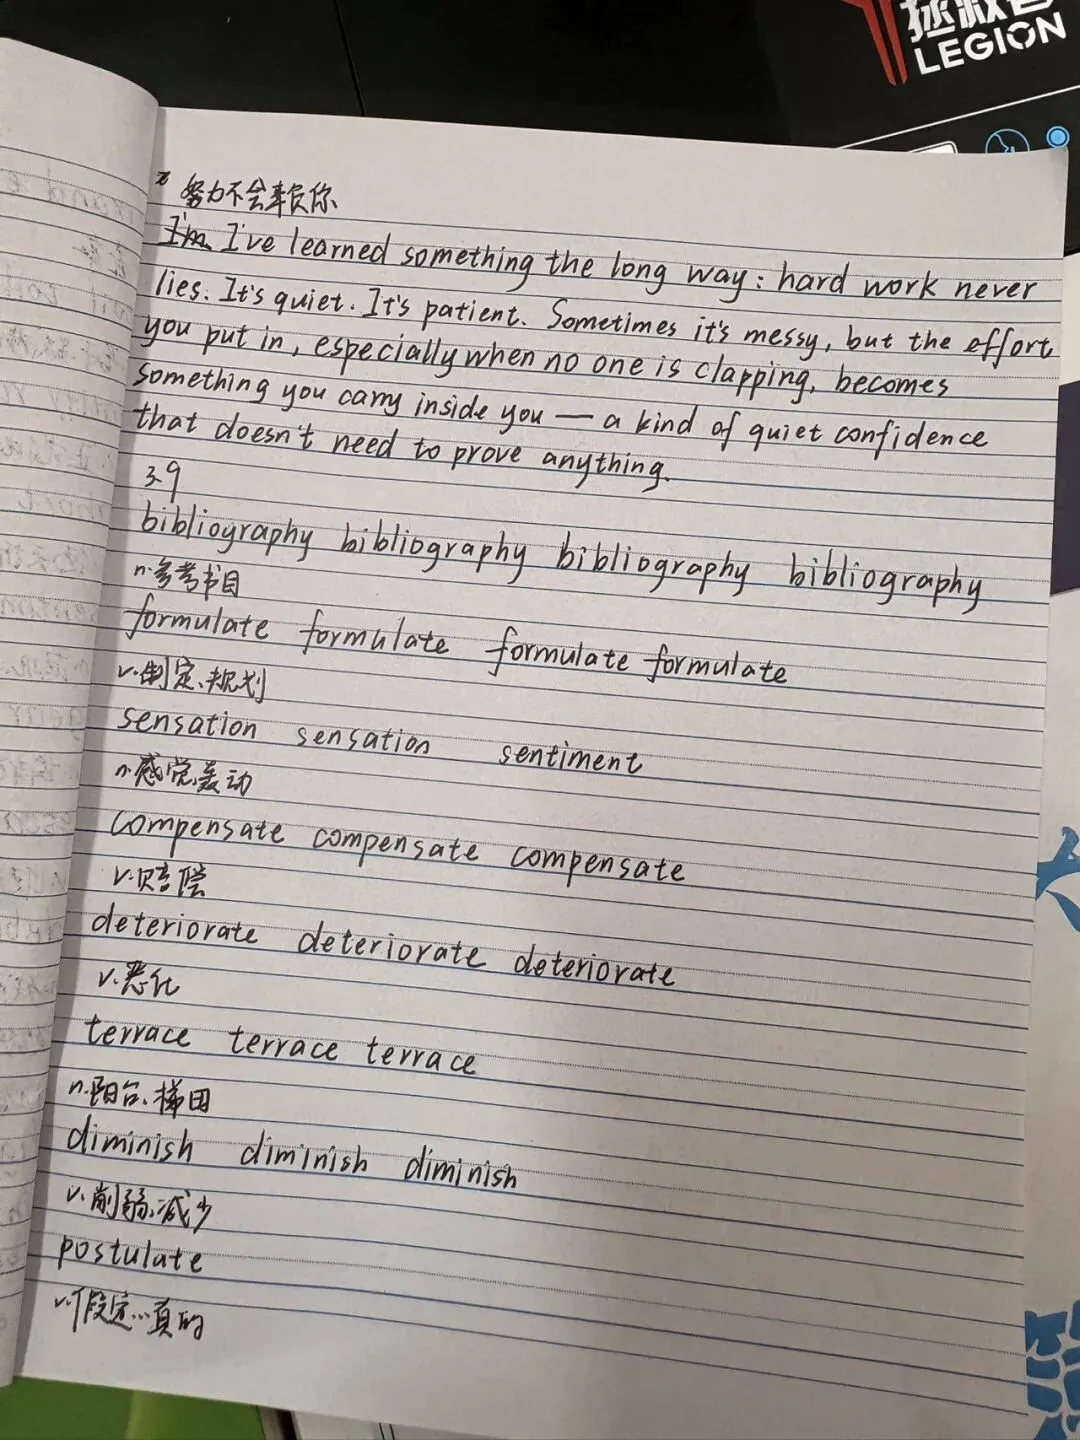 拯救者
LEGION
努力不会辜负你
I'm I've learned something the long way: hard work never
lies. It's quiet. It's patient. Sometimes it's messy, but the effort
you put in, especially when no one is clapping, becomes
something you carry inside you — a kind of quiet confidence
that doesn't need to prove anything.
3.9
bibliography bibliography bibliography bibliography
n.参考书目
formulate formulate formulate formulate
v.制定、规划
sensation sensation sentiment
n.感觉、轰动
compensate compensate compensate
v.赔偿
deteriorate deteriorate deteriorate
v.恶化
terrace terrace terrace
n.阳台、梯田
diminish diminish diminish
v.削弱、减少
postulate
v.假定…真的